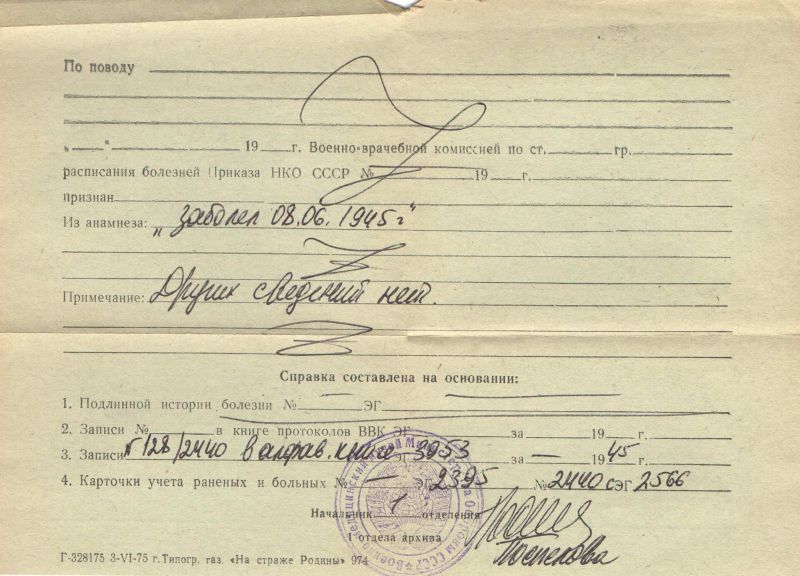 По поводу
„ “ 19 г. Военно-врачебной комиссией по ст. гр.
расписания болезней Приказа НКО СССР № 19 г.
признан
Из анамнеза: „заболел 08.06.1945 г“
Примечание: Других сведений нет.
Справка составлена на основании:
1. Подлинной истории болезни № ЭГ
2. Записи № в книге протоколов ВВК ЭГ за 19 г.
3. Записи № 128/2440 в алфав. книге ЭГ 3953 за — 1945 г.
4. Карточки учета раненых и больных № — ЭГ 2395 № 2440 с ЭГ 2566
Начальник 1 отделения
1 отдела архива
Г-328175 3-VI-75 г. Типогр. газ. «На страже Родины» 974